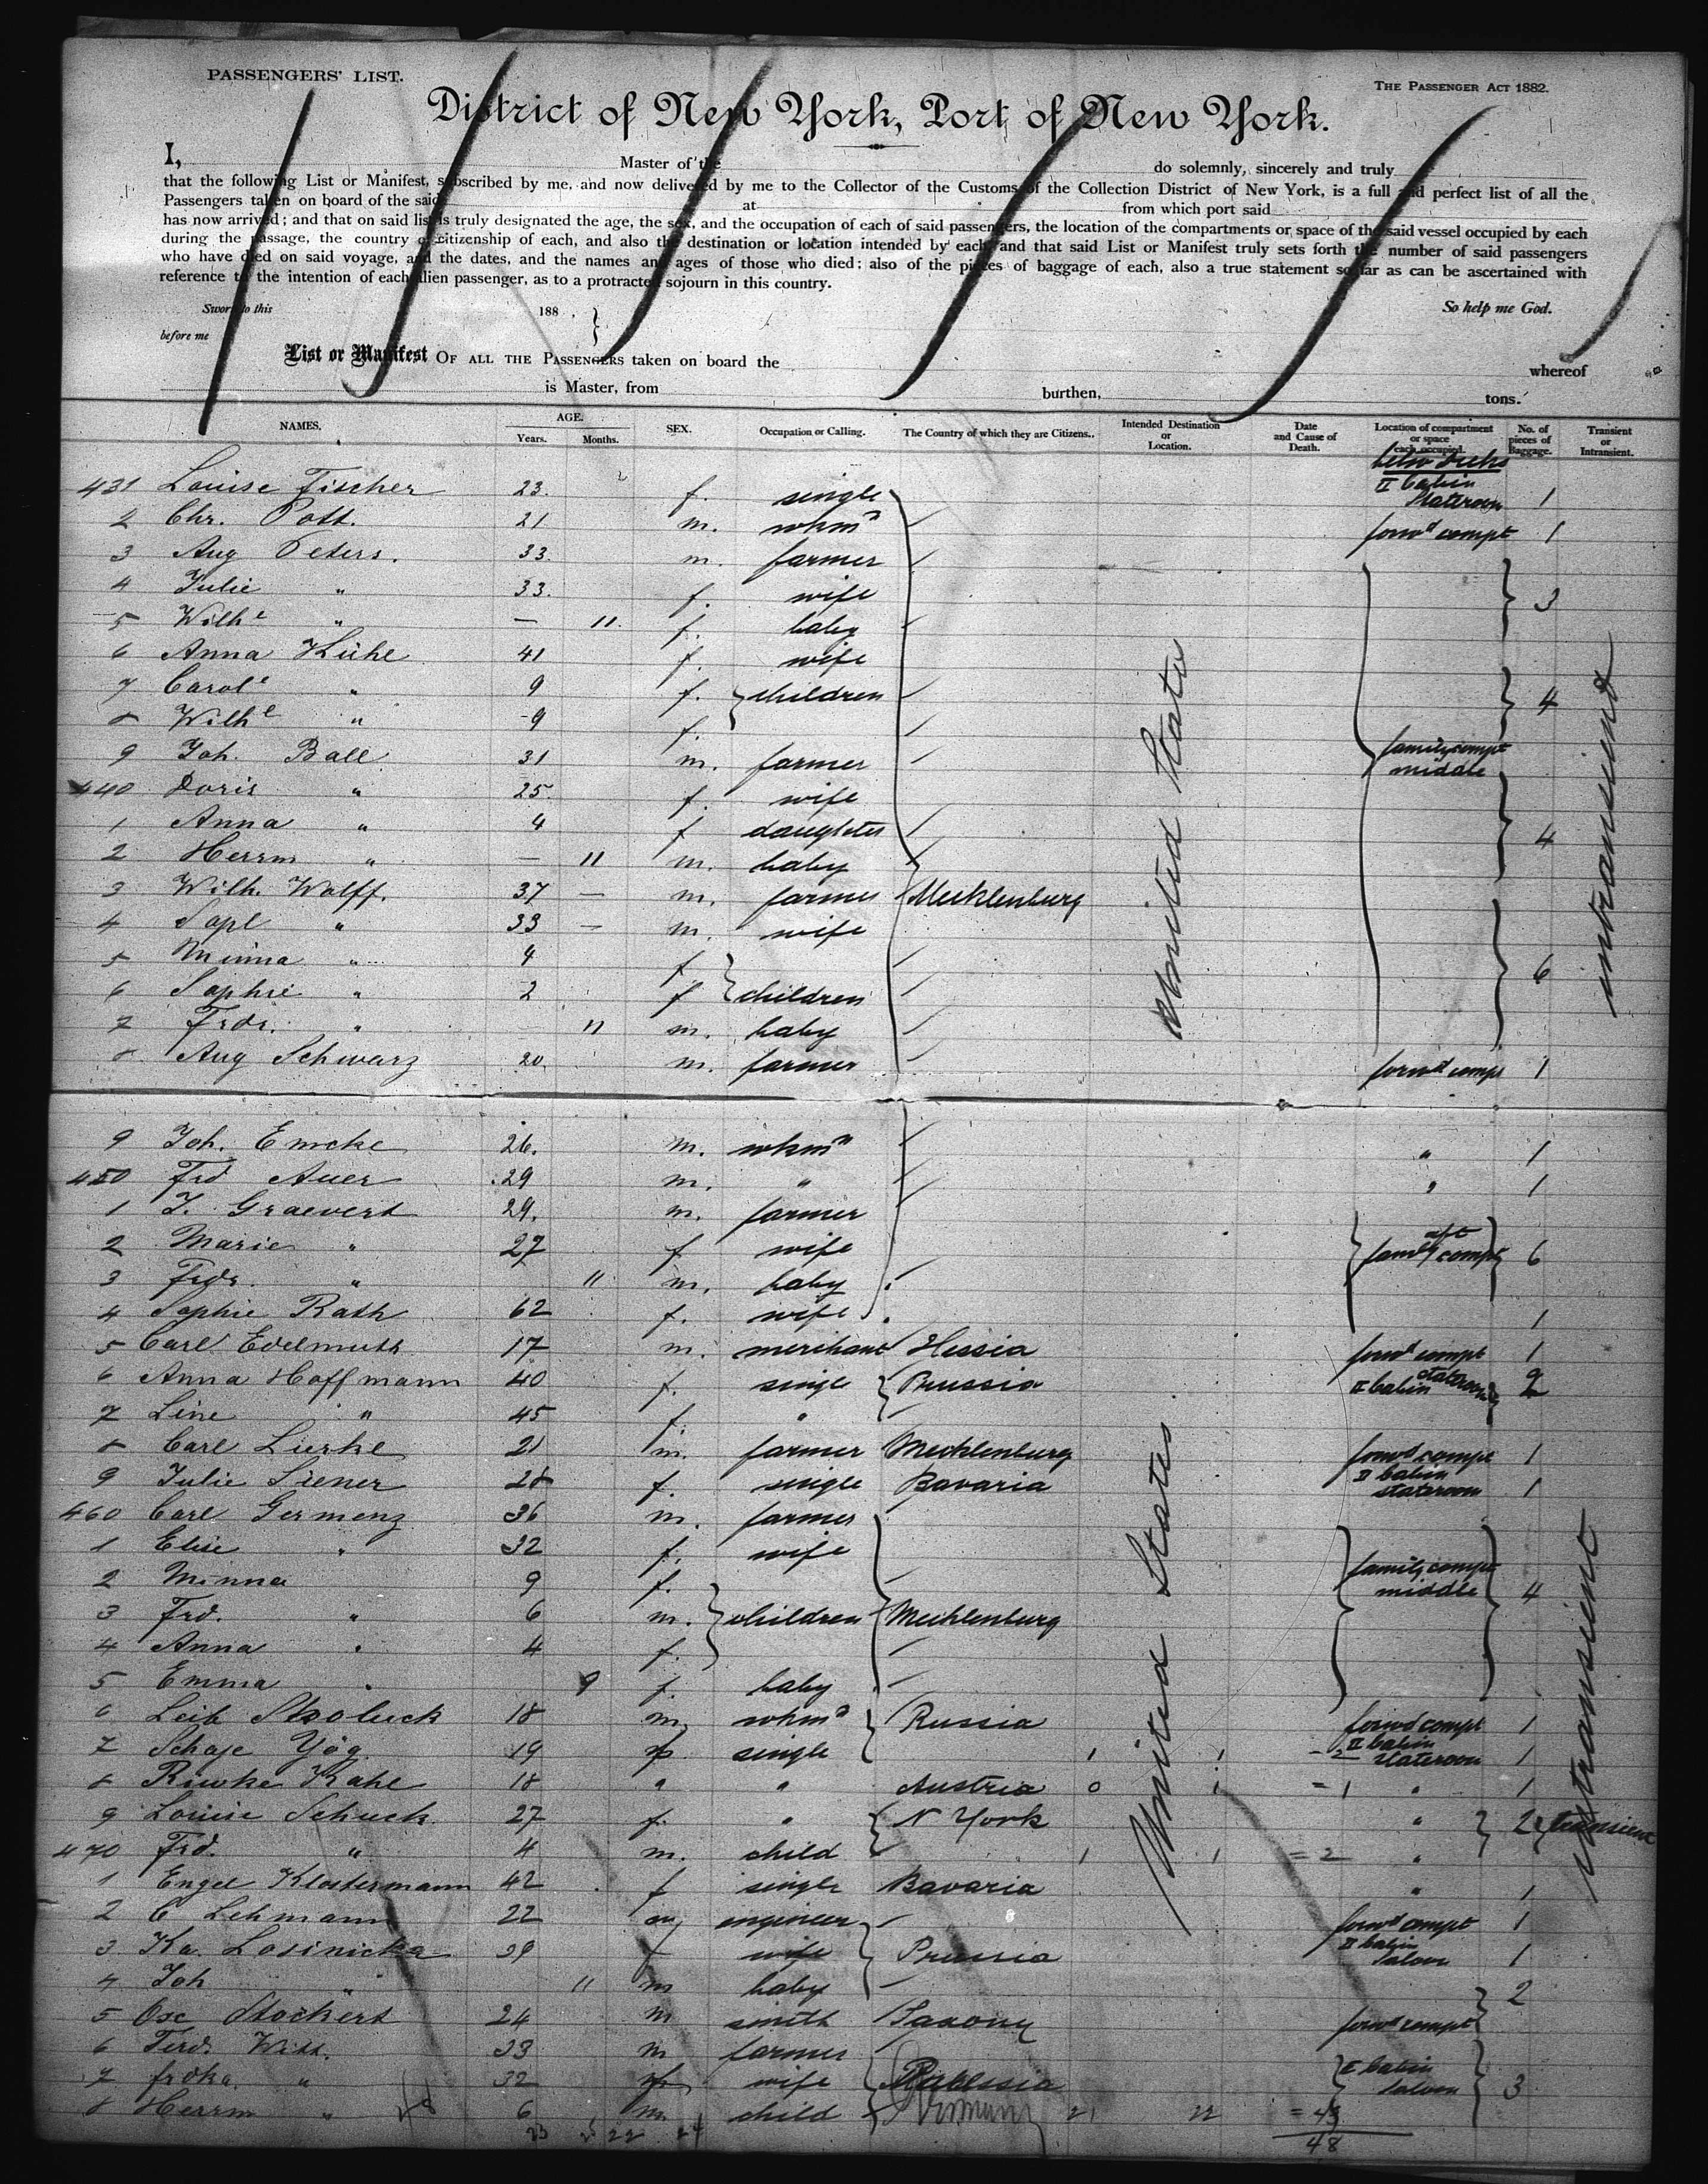 PASSENGERS' LIST.
THE PASSENGER ACT 1882.
District of New York, Port of New York.
I, Master of the do solemnly, sincerely and truly
that the following List or Manifest, subscribed by me, and now delivered by me to the Collector of the Customs of the Collection District of New York, is a full and perfect list of all the
Passengers taken on board of the said at from which port said
has now arrived; and that on said list is truly designated the age, the sex, and the occupation of each of said passengers, the location of the compartments or space of the said vessel occupied by each
during the passage, the country of citizenship of each, and also the destination or location intended by each, and that said List or Manifest truly sets forth the number of said passengers
who have died on said voyage, and the dates, and the names and ages of those who died; also of the pieces of baggage of each, also a true statement so far as can be ascertained with
reference to the intention of each alien passenger, as to a protracted sojourn in this country.
Sworn to this 188 , So help me God.
before me
List or Manifest OF ALL THE PASSENGERS taken on board the whereof
is Master, from burthen, tons.
NAMES. AGE. Years. Months. SEX. Occupation or Calling. The Country of which they are Citizens. Intended Destination or Location. Date and Cause of Death. Location of compartment or space each occupied. No. of pieces of Baggage. Transient or Intransient.
431 Louise Fischer 23. f. single II Cabin Stateroom 1
2 Chr. Pott. 21 m. wkmn forwd compt 1
3 Aug Peters. 33. m. farmer
4 Julie " 33. f. wife 3
5 Wilhe " — 11. f. baby
6 Anna Kühl 41 f. wife
7 Carole " 9 f. children 4
8 Wilhe " 9 f.
9 Joh. Ball 31 m. farmer family compt middle
440 Doris " 25. f. wife
1 Anna " 4 f daughter 4
2 Herrm " — 11 m. baby
3 Wilh. Wolff. 37 — m. farmer Mecklenburg
4 " 33 — m. wife
5 Minna " 4 f 6
6 Sophie " 2 f children
7 Frdr. " 11 m. baby
8 Aug Schwarz 20. m. farmer forwd compt 1
United States
intransient
9 Joh. Emcke 26. m. wkmn " 1
450 Frd Auer 29 m. " " 1
1 J. Graevert 29. m. farmer
2 Marie " 27 f wife aft family compt 6
3 Frdr. " 11 m. baby
4 Sophie Rath 62 f. wife 1
5 Carl Edelmuth 17 m. merchant Hessia forwd compt 1
6 Anna Hoffmann 40 f. single Prussia II Cabin stateroom 2
7 Line " 45 f. "
8 Carl Lierke 21 m. farmer Mecklenburg forwd compt 1
9 Julie Siener 28 f. single Bavaria II Cabin stateroom 1
460 Carl Germenz 36 m. farmer
1 Elise " 32 f. wife family compt
2 Minna 9 f. middle 4
3 Frd. " 6 m. children Mecklenburg
4 Anna " 4 f.
5 Emma " 9 f. baby
6 Leib Skoluck 18 m. wkmn Russia forwd compt 1
7 Schaje Jög 19 f single 1 1 = 2 II Cabin stateroom 1
8 Riwke Kahl 18 " " Austria 0 1 = 1 " 1
9 Louise Schuck. 27 f. " N York " 2 transient
470 Frd. " 4 m. child 1 1 = 2 "
1 Engel Klostermann 42 f single Bavaria " 1
2 C Lehmann 22 m engineer forwd compt 1
3 Ka. Losinicka 29 f wife Prussia II Cabin Saloon 1
4 Joh " 11 m baby 2
5 Osc Stockert 24 m smith Saxony forwd compt
6 Ferd. Witt. 33 m farmer
7 Frdka. " 32 f wife II Cabin Saloon 3
8 Herrm " 6 m. child 21 22 = 43
United States
intransient
23 22 24 48